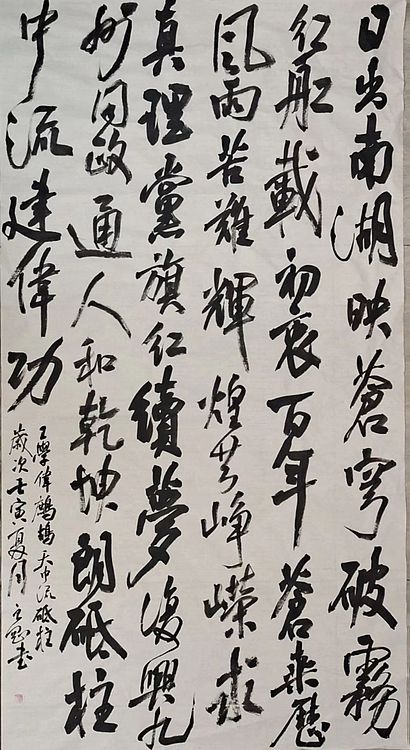 日出南湖映蒼穹破霧
紅船載初衷百年蒼桑歷
風雨苦難輝煌共崢嶸求
真理黨旗紅續夢復興九
州同政通人和乾坤朗砥柱
中流建偉功
王學偉鷓鴣天中流砥柱
歲次壬寅夏月書